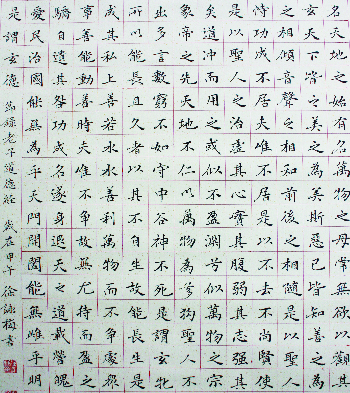 名天地之始有名萬物之母常無欲以觀其
玄天下皆知美之為美斯惡已皆知善之為
之相傾音聲之相和前後之相隨是以聖人
恃功成不居夫唯不居是以不去不尚賢使
是以聖人之治虛其心實其腹弱其志強其
矣道沖而用之或似不盈淵兮似萬物之宗
象帝之先天地不仁以萬物為芻狗聖人不
出多言數窮不如守中谷神不死是謂玄牝
所以能長且久者以其不自生故能長生是
成其私上善若水水善利萬物而不爭處眾
事善能動善時夫唯不爭故無尤持而盈之
驕自遺其咎功成名遂身退天之道載營魄
愛民治國能無為乎天門開闔能無雌乎明
是謂玄德 節錄老子道德經 歲在甲午 徐詠梅書